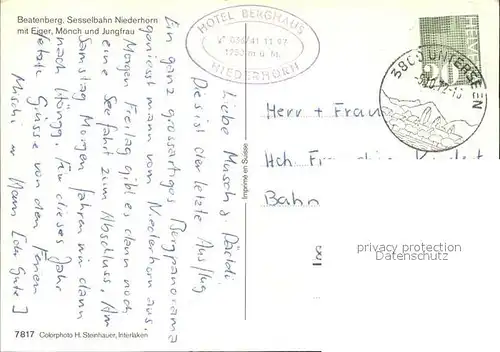 Beatenberg, Sesselbahn Niederhorn
mit Eiger, Mönch und Jungfrau
HOTEL BERGHAUS
036/41 11 97
1950 m ü. M.
NIEDERHORN
HELVETIA
20
3800 UNTERSEEN
Liebe
Dies ist der letzte Ausflug
Ein ganz grossartiges Bergpanorama
geniesst man vom Niederhorn aus.
Morgen Freitag gibt es dann noch
eine Seefahrt zum Abschluss. Am
Samstag Morgen fahren wir dann
nach Höngg. Für dieses Jahr
letzte Grüsse von den Ferien
Herr + Frau
Hch.
Bahn
Imprimé en Suisse
privacy protection
ansichtskartenversand.com
7817 Colorphoto H. Steinhauer, Interlaken